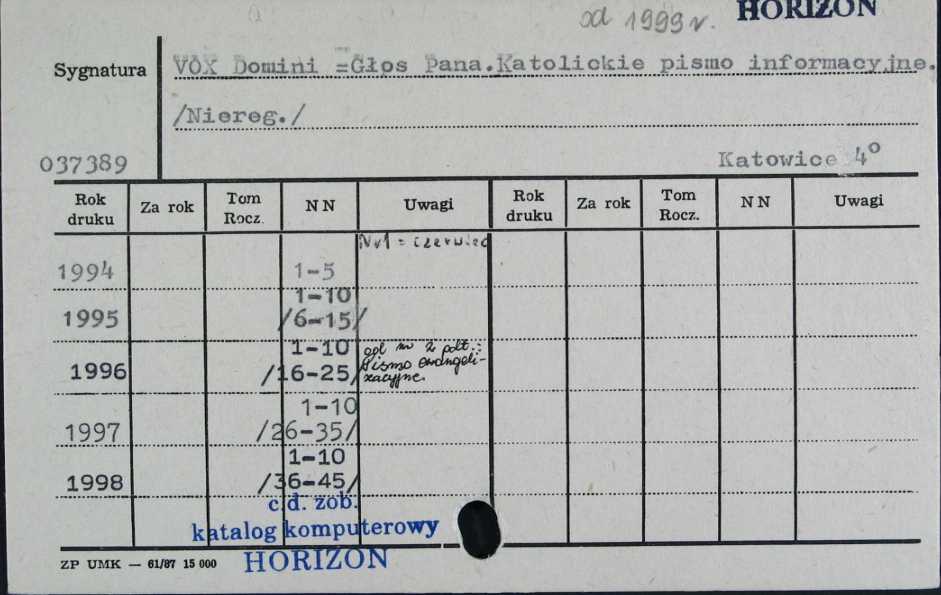 od 1999 r. HORIZON
Sygnatura VOX Domini =Głos Pana.Katolickie pismo informacyjne.
/Niereg./
037389 Katowice 4°
Rok druku Za rok Tom Rocz. NN Uwagi Rok druku Za rok Tom Rocz. NN Uwagi
Nr1 = czerwiec
1994 1-5
1-10
1995 /6-15/
1-10 od nr 2 podt.:
1996 /16-25/ Pismo ewangeli-
zacyjne.
1-10
1997 /26-35/
1-10
1998 /36-45/
c.d. zob.
katalog komputerowy
ZP UMK — 61/87 15 000 HORIZON